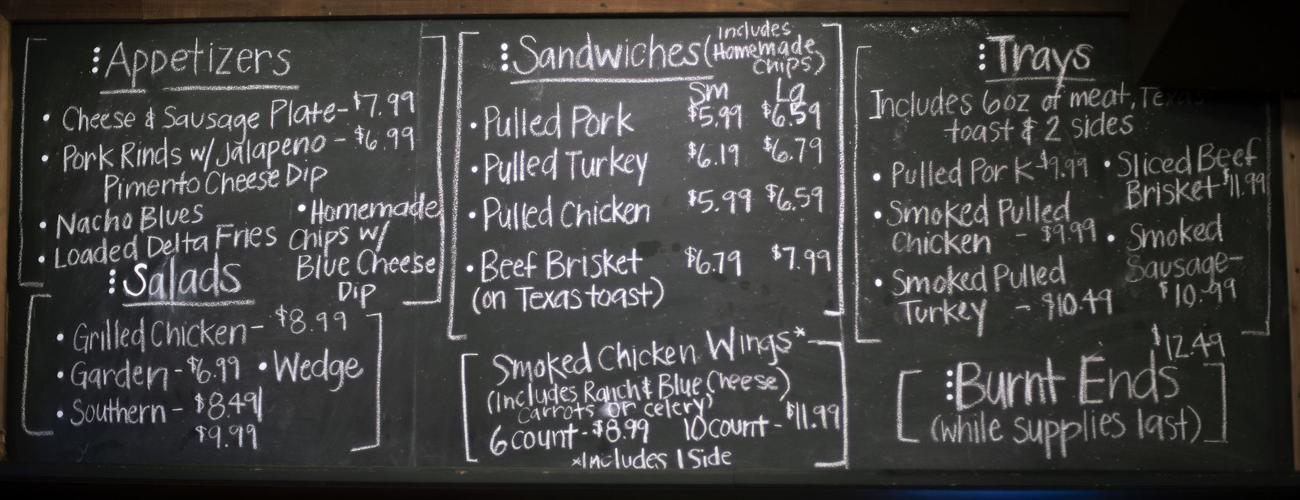 Appetizers
• Cheese & Sausage Plate - $7.99
• Pork Rinds w/ Jalapeno - $6.99
Pimento Cheese Dip
• Nacho Blues
• Loaded Delta Fries
• Homemade
Chips w/
Blue Cheese
Dip
Salads
• Grilled Chicken - $8.99
• Garden - $6.99 • Wedge
• Southern - $8.49
$9.99
Sandwiches (includes
Homemade
chips)
Sm Lg
• Pulled Pork $5.99 $6.59
• Pulled Turkey $6.19 $6.79
• Pulled Chicken $5.99 $6.59
• Beef Brisket $6.79 $7.99
(on Texas toast)
Smoked Chicken Wings*
(includes Ranch & Blue Cheese)
carrots or celery
6 count - $8.99 10 count - $11.99
*Includes 1 Side
Trays
Includes 6oz of meat, Texas
toast & 2 sides
• Pulled Pork $9.99
• Smoked Pulled
Chicken - $9.99
• Smoked Pulled
Turkey - $10.49
• Sliced Beef
Brisket $11.99
• Smoked
Sausage -
$10.99
$12.49
Burnt Ends
(while supplies last)